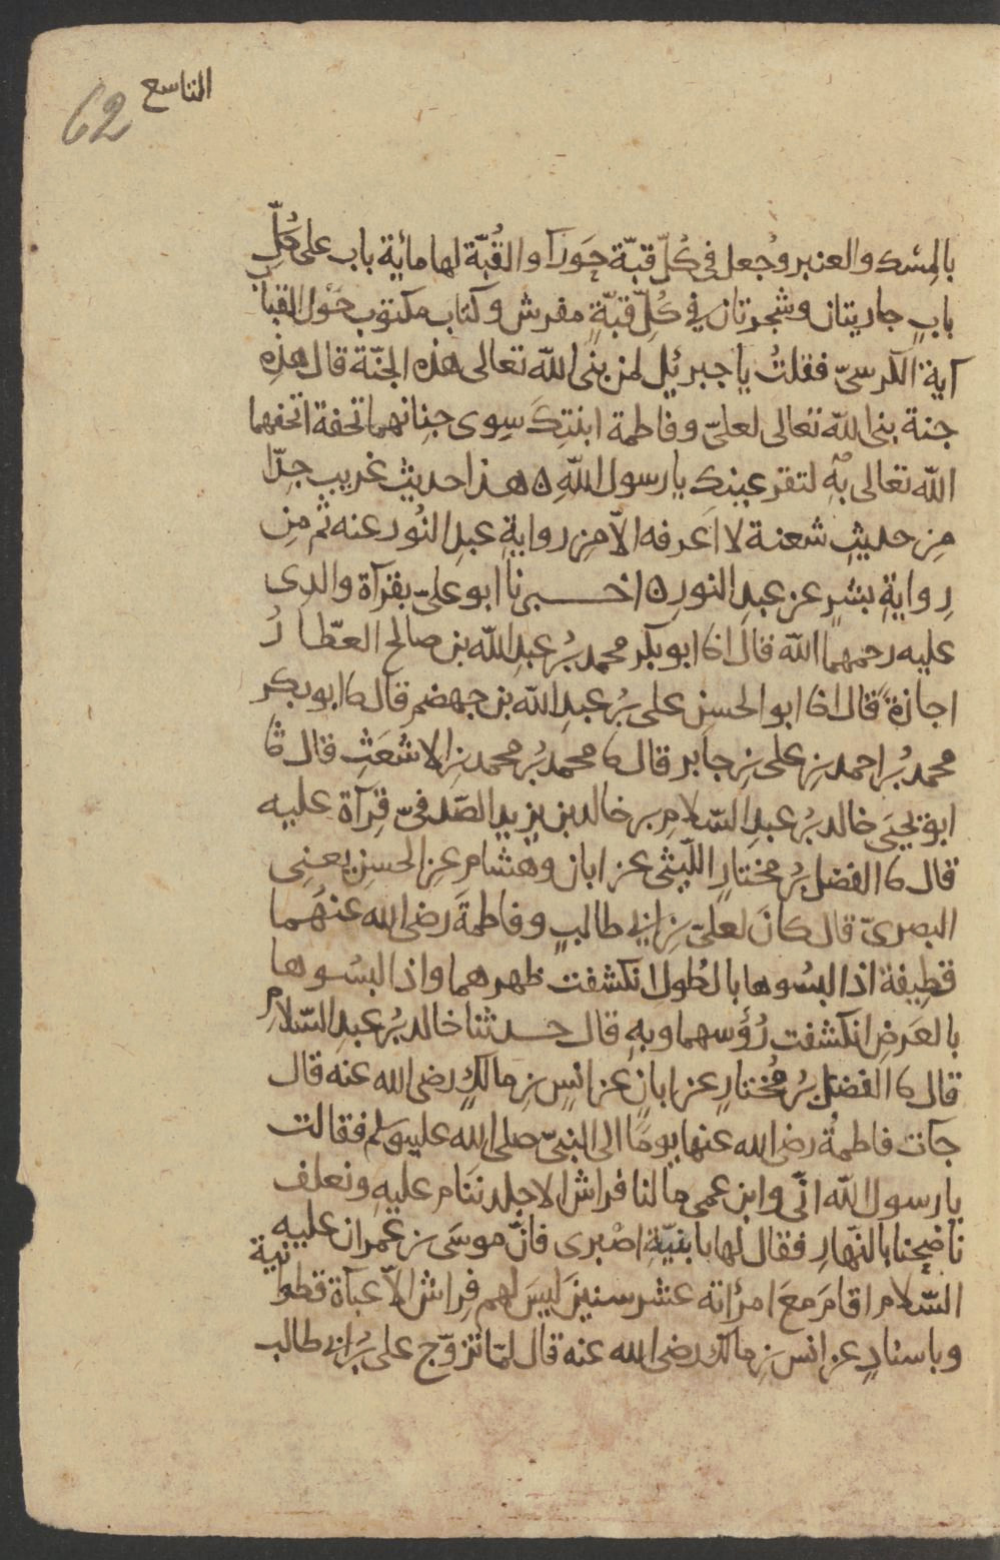 التاسع
62
بالمسك والعنبر وجعل في كُلّ قبّة حَوراَ والقُبّة لها مائة باب على كُلّ
بابٍ جاريتان وشجرتان في كُلِّ قبّةٍ مفرش وكتاب مكتوب حَول القباب
آية الكرسىّ فقلتُ يا جبرئل لمن بنى الله تعالى هذه الجنّة قال هذِه
جنة بنى الله تعالى لعلىّ وفاطمة ابنتِكَ سِوى جِنانهما تحفة اتحفهما
الله تعالى بهِ لتقر عينك يا رسول اللهِ ه هذا حديث غريب جِدّا
مِن حديثِ شعبة لا اعرفه الّا مِن روايةِ عبدِ النُور عنه ثم مِن
رِوايةِ بشرٍ عن عبدِ النورِ ه اخـــبرنا ابو علىّ بقرآة والدِى
عليه رحمهما الله قال انا ابو بكر محمد بنُ عبدِ الله بن صالح العطّارُ
اجازةً قال انا ابو الحسنِ على بنُ عبدِ الله بن جهضم قال نا ابو بكر
محمد بنُ احمد بنِ على بنِ جابر قال نا محمد بنُ محمد بنِ الاشعَثِ قال نا
ابو يحيَى خالد بنُ عبدِ السّلامِ بن خالد بن يزيد الصّدفىّ قِرآة عليه
قال نا الفضل بنُ مختارٍ اللّيثى عن ابان وهشام عنِ الحسنِ يعنِى
البصرىّ قال كانَ لعلىّ بنِ ابى طالبٍ وفاطمةَ رضى الله عنهُما
قطِيفة اذا البسُوها بالطُول انكشفت ظهرهما واذا البسُوها
بالعَرضِ انكشفت رُؤسهما وبهِ قال حـــدثنا خالد بنُ عبدِ السّلامِ
قال نا الفضل بنُ مُختارٍ عن ابانٍ عن انسِ بنِ مالكٍ رضى الله عنه قال
جآت فاطمةُ رضى الله عنها يومًا الى النبىّ صلى الله عليه وسلم فقالت
يا رسول الله انّى وابن عمى ما لنا فراش الا جلد ننام عليهِ ونعلف
ناضِحنا بالنّهارِ فقال لها يا بنيّةِ اصْبرى فانّ موسَى بن عمران عليه
السّلام اقامَ معَ امرأته عشر سنينَ ليسَ لهم فِراش الّا عبآة قطوانية
وباسنادٍ عن انس بنِ مالك رضى الله عنه قال لمّا تزوّج على بنُ ابى طالب